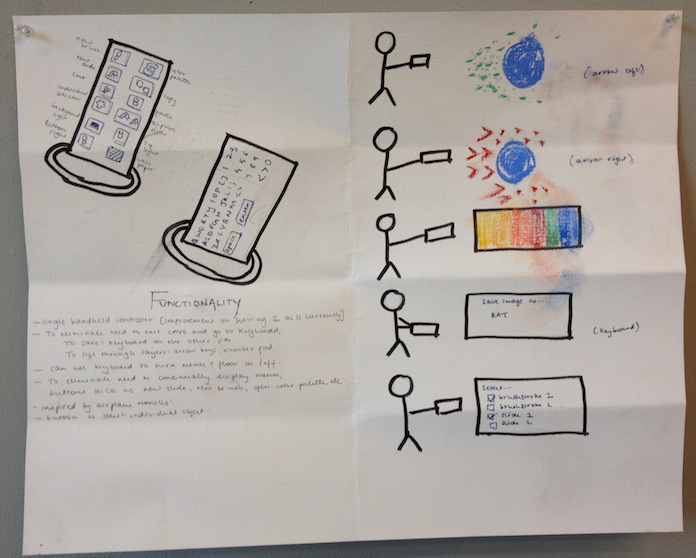 new
brush
new
slide
color
palette
copy
paste
background
light
QWERTY IOP
ASDFGH JKL
ZXCVBNM
space
enter
FUNCTIONALITY
- single handheld controller [improvement on having 2 as is currently]
- To eliminate need to exit CAVE and go to keyboard,
To save: keyboard on the other side
To flip through layers: arrow keys, number pad
- can use keyboard to turn menu + floor on/off.
- To eliminate need to continually display menu,
buttons such as new slide, new brush, open color palette, etc.
- Inspired by airplane remotes
- button to select individual object
(arrow left)
(arrow right)
save image as
BAT
(keyboard)
Select...
brushstroke 1
brushstroke 2
slide 1
slide 2